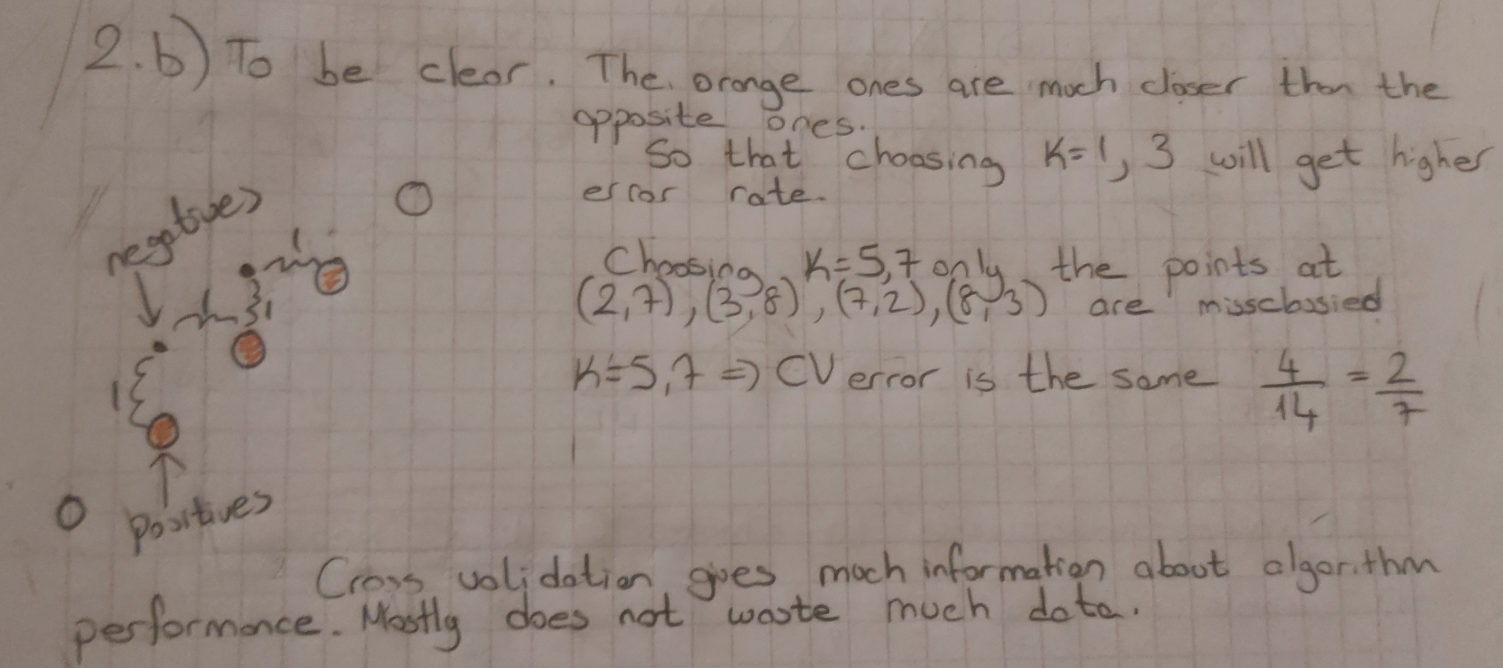 2.b) To be clear. The orange ones are much closer than the
opposite ones.
So that choosing K=1, 3 will get higher
error rate.
negatives
Choosing K=5,7 only the points at
(2,7), (3,8), (7,2), (8,3) are missclassied
1
1
K=5,7 => CV error is the same 4/14 = 2/7
1
positives
Cross validation gives much information about algorithm
performance. Mostly does not waste much data.